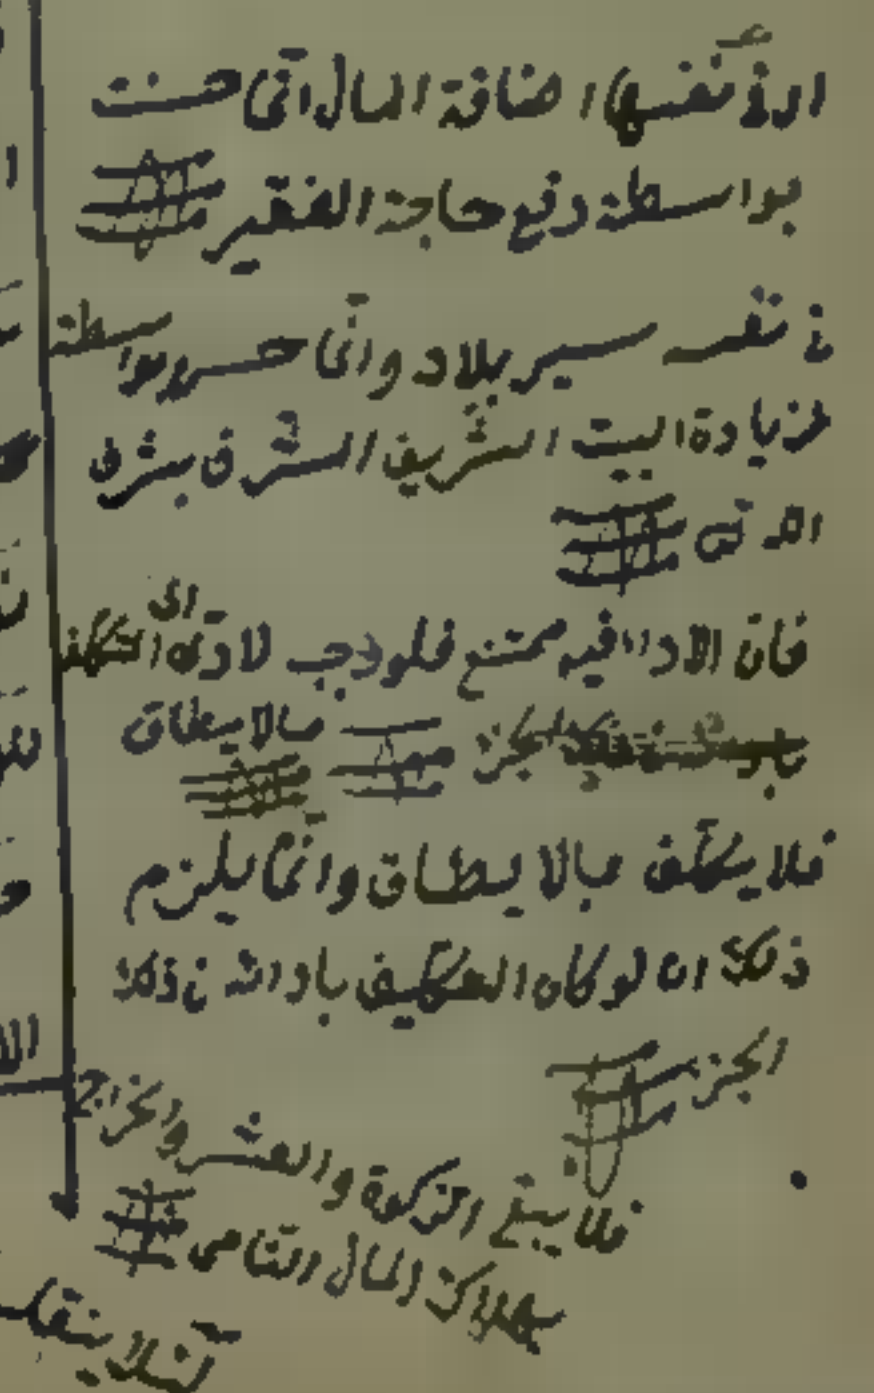 اذ في نفسها اضاعة المال انّما حسنت
بواسطة دفع حاجة الفقير
في نفسه سير بلاد وانّما حسن بواسطة
زيادة البيت الشريف المشرف بشرف
الله تعـ
فان الاداء فيه ممتنع فلو وجب لادّى الى التكليف
لجزء بما لا يطاق
فلا يكلّف بما لا يطاق وانّما يلزم
ذلك ان لو كان التكليف باداءه في ذلك
الجزء
فلا يبقى الزكوة والعشر والخراج
بهلاك المال النّامى
لئلا ينقلب